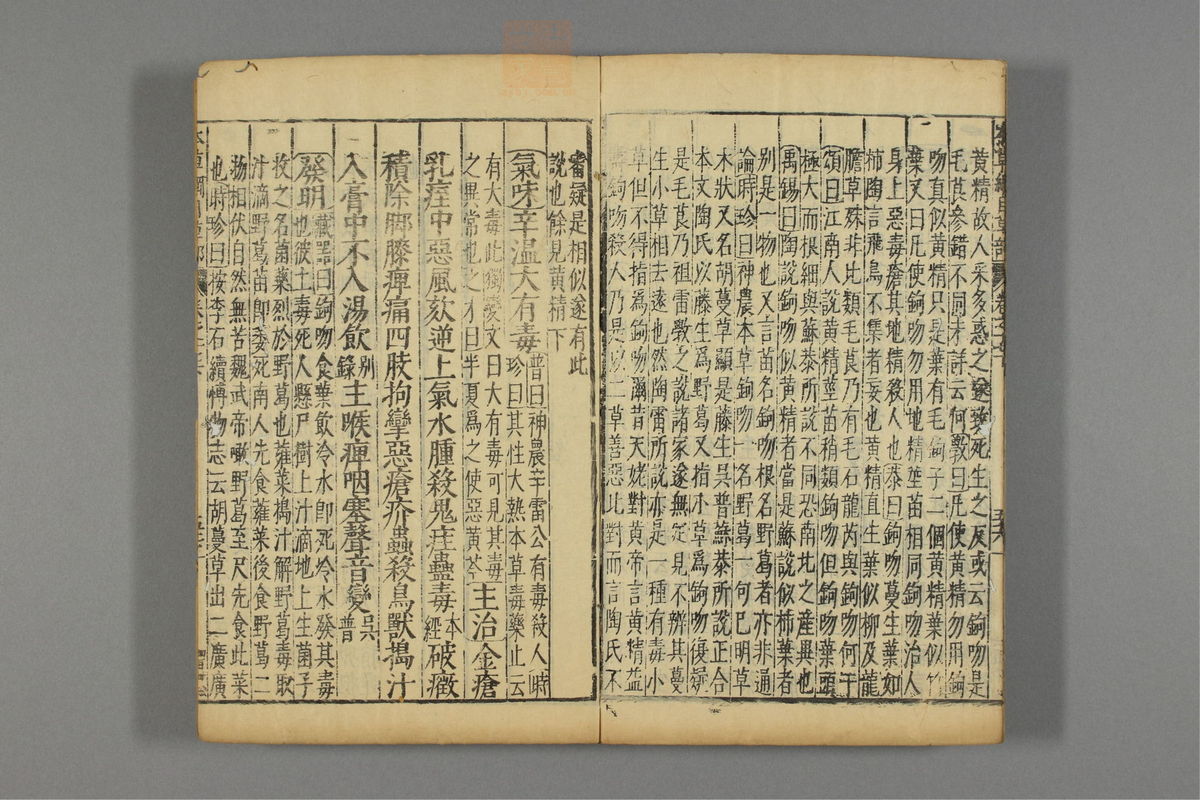 黃精故人采多惑之遂致死生之反或云鉤吻是
毛茛參錯不同未詳云何斆曰凡使黃精勿用鉤
吻真似黃精只是葉有毛鉤子二個黃精葉似竹
葉又曰凡使鉤吻勿用地精莖苗相同鉤吻治人
身上惡毒瘡其地精殺人也恭曰鉤吻蔓生葉如
柿陶言飛鳥不集者妄也黃精直生葉似柳及龍
膽草殊非比類毛茛乃有毛石龍芮與鉤吻何干
頌曰江南人說黃精莖苗稍類鉤吻但鉤吻葉頭
極大而根細與蘇恭所說不同恐南北之產異也
禹錫曰陶說鉤吻似黃精者當是蘇說似柿葉者
別是一物也又言苗名鉤吻根名野葛者亦非通
論時珍曰神農本草鉤吻一名野葛一句已明草
木狀又名胡蔓草顯是藤生吳普蘇恭所說正合
本文陶氏以藤生爲野葛又指小草爲鉤吻復疑
是毛茛乃祖雷斆之說諸家遂無定見不辨其蔓
生小草相去遠也然陶雷所說亦是一種有毒小
草但不得指爲鉤吻爾昔天姥對黃帝言黃精益
壽鉤吻殺人乃是以二草善惡比對而言陶氏不
審疑是相似遂有此
說也餘見黃精下
氣味辛溫大有毒 普曰神農辛雷公有毒殺人時
珍曰其性大熱本草毒藥止云
有大毒此獨變文曰大有毒可見其毒
之異常也之才曰半夏爲之使惡黃芩 主治金瘡
乳痓中惡風欬逆上氣水腫殺鬼疰蠱毒本經破癥
積除腳膝痺痛四肢拘攣惡瘡疥蟲殺鳥獸搗汁
入膏中不入湯飲別錄主喉痺咽塞聲音變吳普
發明 藏器曰鉤吻食葉飲冷水即死冷水發其毒
也彼土毒死人懸尸樹上汁滴地上生菌子
收之名菌藥烈於野葛也蕹菜搗汁解野葛毒取
汁滴野葛苗即萎死南人先食蕹菜後食野葛二
物相伏自然無苦魏武帝噉野葛至尺先食此菜
也時珍曰按李石續博物志云胡蔓草出二廣廣